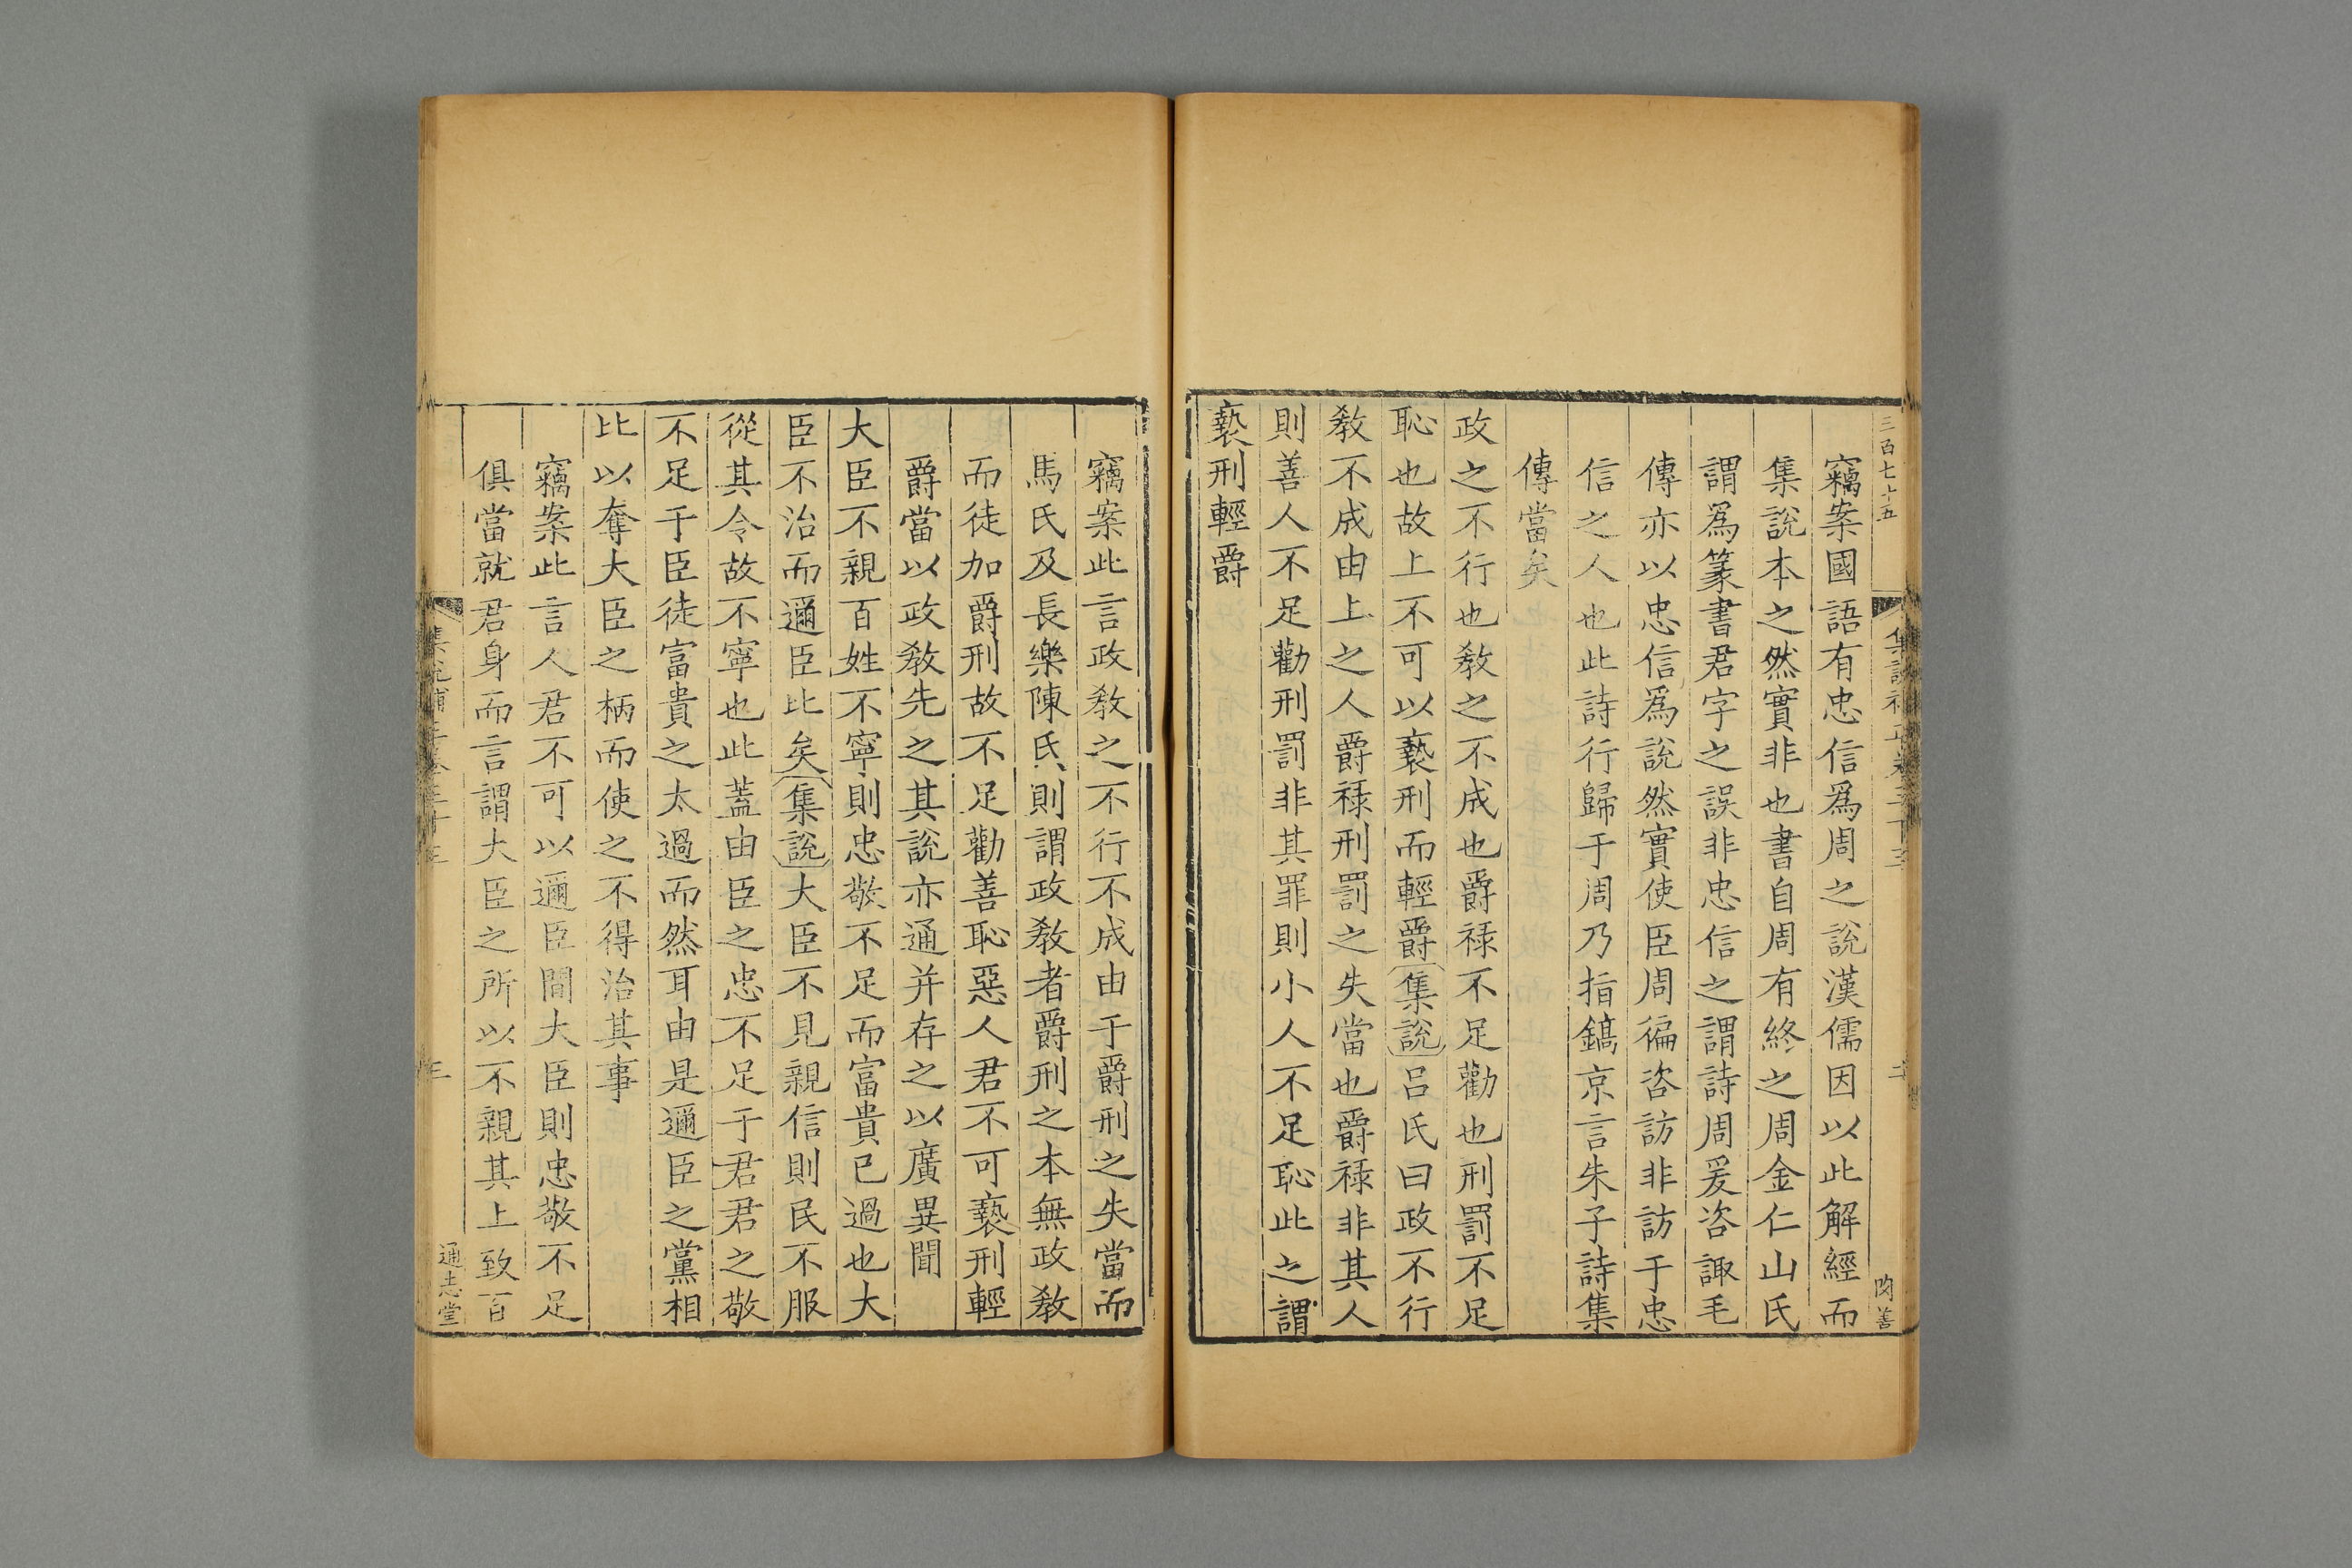 三百七十五
竊案國語有忠信爲周之說漢儒因以此解經而
集說本之然實非也書自周有終之周金仁山氏
謂爲篆書君字之誤非忠信之謂詩周爰咨諏毛
傳亦以忠信爲說然實使臣周徧咨訪非訪于忠
信之人也此詩行歸于周乃指鎬京言朱子詩集
傳當矣
政之不行也敎之不成也爵禄不足勸也刑罰不足
恥也故上不可以褻刑而輕爵集說呂氏曰政不行
敎不成由上之人爵禄刑罰之失當也爵禄非其人
則善人不足勸刑罰非其罪則小人不足恥此之謂
褻刑輕爵
竊案此言政敎之不行不成由于爵刑之失當而
馬氏及長樂陳氏則謂政敎者爵刑之本無政敎
而徒加爵刑故不足勸善恥惡人君不可褻刑輕
爵當以政敎先之其說亦通并存之以廣異聞
大臣不親百姓不寧則忠敬不足而富貴已過也大
臣不治而邇臣比矣集說大臣不見親信則民不服
從其令故不寧也此蓋由臣之忠不足于君君之敬
不足于臣徒富貴之太過而然耳由是邇臣之黨相
比以奪大臣之柄而使之不得治其事
竊案此言人君不可以邇臣閒大臣則忠敬不足
俱當就君身而言謂大臣之所以不親其上致百
三
通志堂